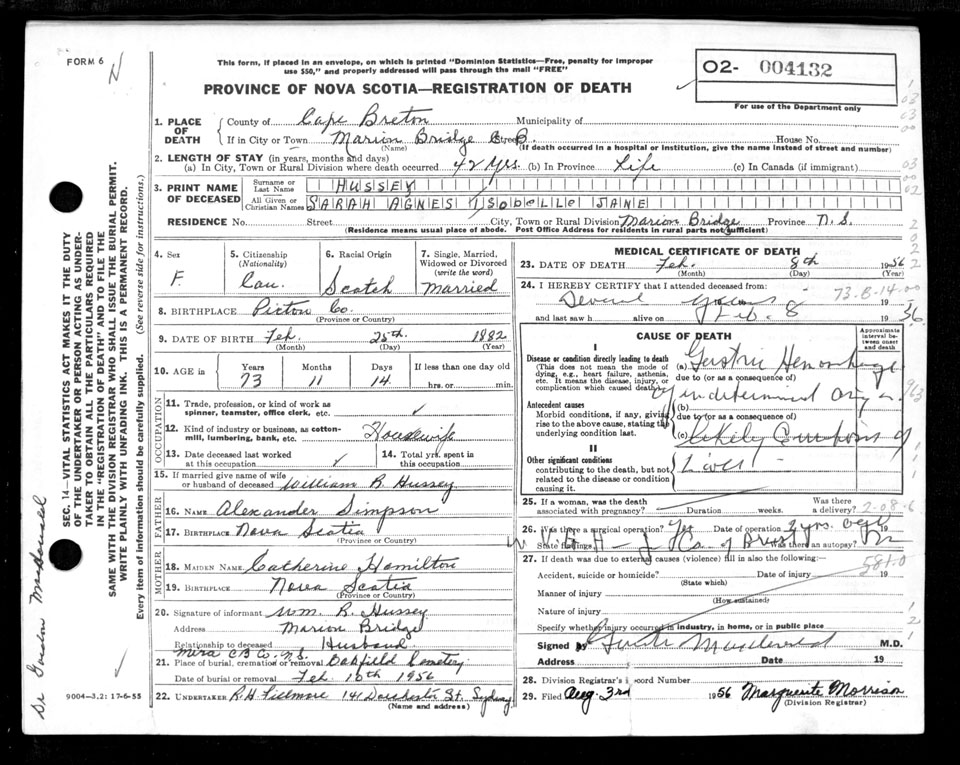 FORM 6
N
This form, if placed in an envelope, on which is printed "Dominion Statistics—Free, penalty for improper
use $50," and properly addressed will pass through the mail "FREE"
PROVINCE OF NOVA SCOTIA—REGISTRATION OF DEATH
02- 004132
For use of the Department only
1. PLACE OF DEATH
County of Cape Breton Municipality of
If in City or Town Marion Bridge C.B. Street House No.
(Name) (If death occurred in a hospital or institution, give the name instead of street and number)
2. LENGTH OF STAY (in years, months and days)
(a) In City, Town or Rural Division where death occurred 42 Yrs. (b) In Province Life (c) In Canada (if immigrant)
3. PRINT NAME OF DECEASED
Surname or Last Name HUSSEY
All Given or Christian Names SARAH AGNES ISObelle JANE
RESIDENCE No. Street City, Town or Rural Division Marion Bridge Province N.S.
(Residence means usual place of abode. Post Office Address for residents in rural parts not sufficient)
4. Sex F.
5. Citizenship (Nationality) Can.
6. Racial Origin Scotch
7. Single, Married, Widowed or Divorced (write the word) Married
8. BIRTHPLACE Picton Co.
(Province or Country)
9. DATE OF BIRTH Feb. 25th 1882
(Month) (Day) (Year)
10. AGE in Years 73 Months 11 Days 14
If less than one day old hrs. or min.
OCCUPATION
11. Trade, profession, or kind of work as spinner, teamster, office clerk, etc.
12. Kind of industry or business, as cotton-mill, lumbering, bank, etc. Housewife
13. Date deceased last worked at this occupation
14. Total yrs. spent in this occupation
15. If married give name of wife or husband of deceased William R. Hussey
FATHER
16. NAME Alexander Simpson
17. BIRTHPLACE Nova Scotia
(Province or Country)
MOTHER
18. MAIDEN NAME Catherine Hamilton
19. BIRTHPLACE Nova Scotia
(Province or Country)
20. Signature of informant Wm. R. Hussey
Address Marion Bridge
Relationship to deceased Husband
Mira C B Co. N.S.
21. Place of burial, cremation or removal Oakfield Cemetery
Date of burial or removal Feb 10th 1956
22. UNDERTAKER R. H. Fillmore 141 Dorchester St. Sydney
(Name and address)
MEDICAL CERTIFICATE OF DEATH
23. DATE OF DEATH Feb. 8th 1956
(Month) (Day) (Year)
24. I HEREBY CERTIFY that I attended deceased from:
Several years 19
73-8-14-00
and last saw h alive on Feb. 8 1956
CAUSE OF DEATH
Approximate interval between onset and death
I
Disease or condition directly leading to death
(This does not mean the mode of dying, e.g., heart failure, asthenia, etc. It means the disease, injury, or complication which caused death.)
(a) Gastric Hemorrhage
due to (or as a consequence of)
Antecedent causes
Morbid conditions, if any, giving rise to the above cause, stating the underlying condition last.
(b) of indeterminate origin
due to (or as a consequence of)
(c) likely Cirrhosis of
II
Other significant conditions contributing to the death, but not related to the disease or condition causing it.
Liver
25. If a woman, was the death associated with pregnancy? Duration weeks. Was there a delivery?
2-08-6
26. Was there a surgical operation? Yes Date of operation 2 yrs. ago 19
State findings Ca. of Breast Was there an autopsy? No
27. If death was due to external causes (violence) fill in also the following:—
581.0
Accident, suicide or homicide? Date of injury 19
(State which)
Manner of injury
(How sustained)
Nature of injury
Specify whether injury occurred in industry, in home, or in public place
Signed by M.D.
Address Date 19
28. Division Registrar's Record Number
29. Filed Aug. 3rd 1956 Marguerite Morrison
(Division Registrar)
SEC. 14—VITAL STATISTICS ACT MAKES IT THE DUTY
OF THE UNDERTAKER OR PERSON ACTING AS UNDER-
TAKER TO OBTAIN ALL THE PARTICULARS REQUIRED
IN THE "REGISTRATION OF DEATH" AND TO FILE THE
SAME WITH THE DIVISION REGISTRAR WHO SHALL ISSUE THE BURIAL PERMIT.
WRITE PLAINLY WITH UNFADING INK. THIS IS A PERMANENT RECORD.
Every item of information should be carefully supplied. (See reverse side for instructions.)
9004—3.2: 17-6-55